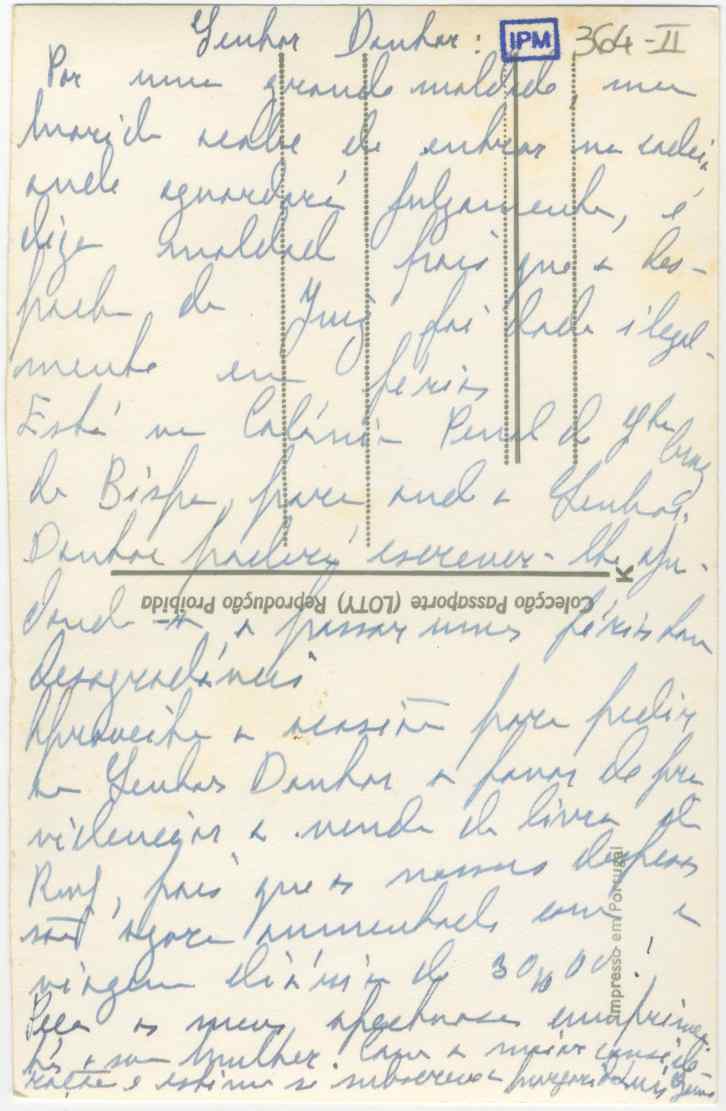 Senhor Doutor: IPM 364-II
Por uma grande maldade, meu
marido acaba de entrar na cadeia,
onde aguardará julgamento, e
digo maldade pois que o des-
pacho do Juiz foi dado ilegal-
mente em férias
Está na Colónia Penal de Stª Cruz
do Bispo, para onde o Senhor
Doutor poderá escrever-lhe aju-
dando-o a passar umas férias tão
desagradáveis
Aproveito a ocasião para pedir
ao Senhor Doutor o favor de pro
videnciar a venda do livro do
pois que as nossas despesas
são agora aumentadas com a
viagem diária de 30$00!
Peço os meus cumprimen-
tos a sua mulher. Com a maior conside-
ração e estima se subscreve a
Colecção Passaporte (LOTY) Reprodução Proibida
K
Impresso em Portugal